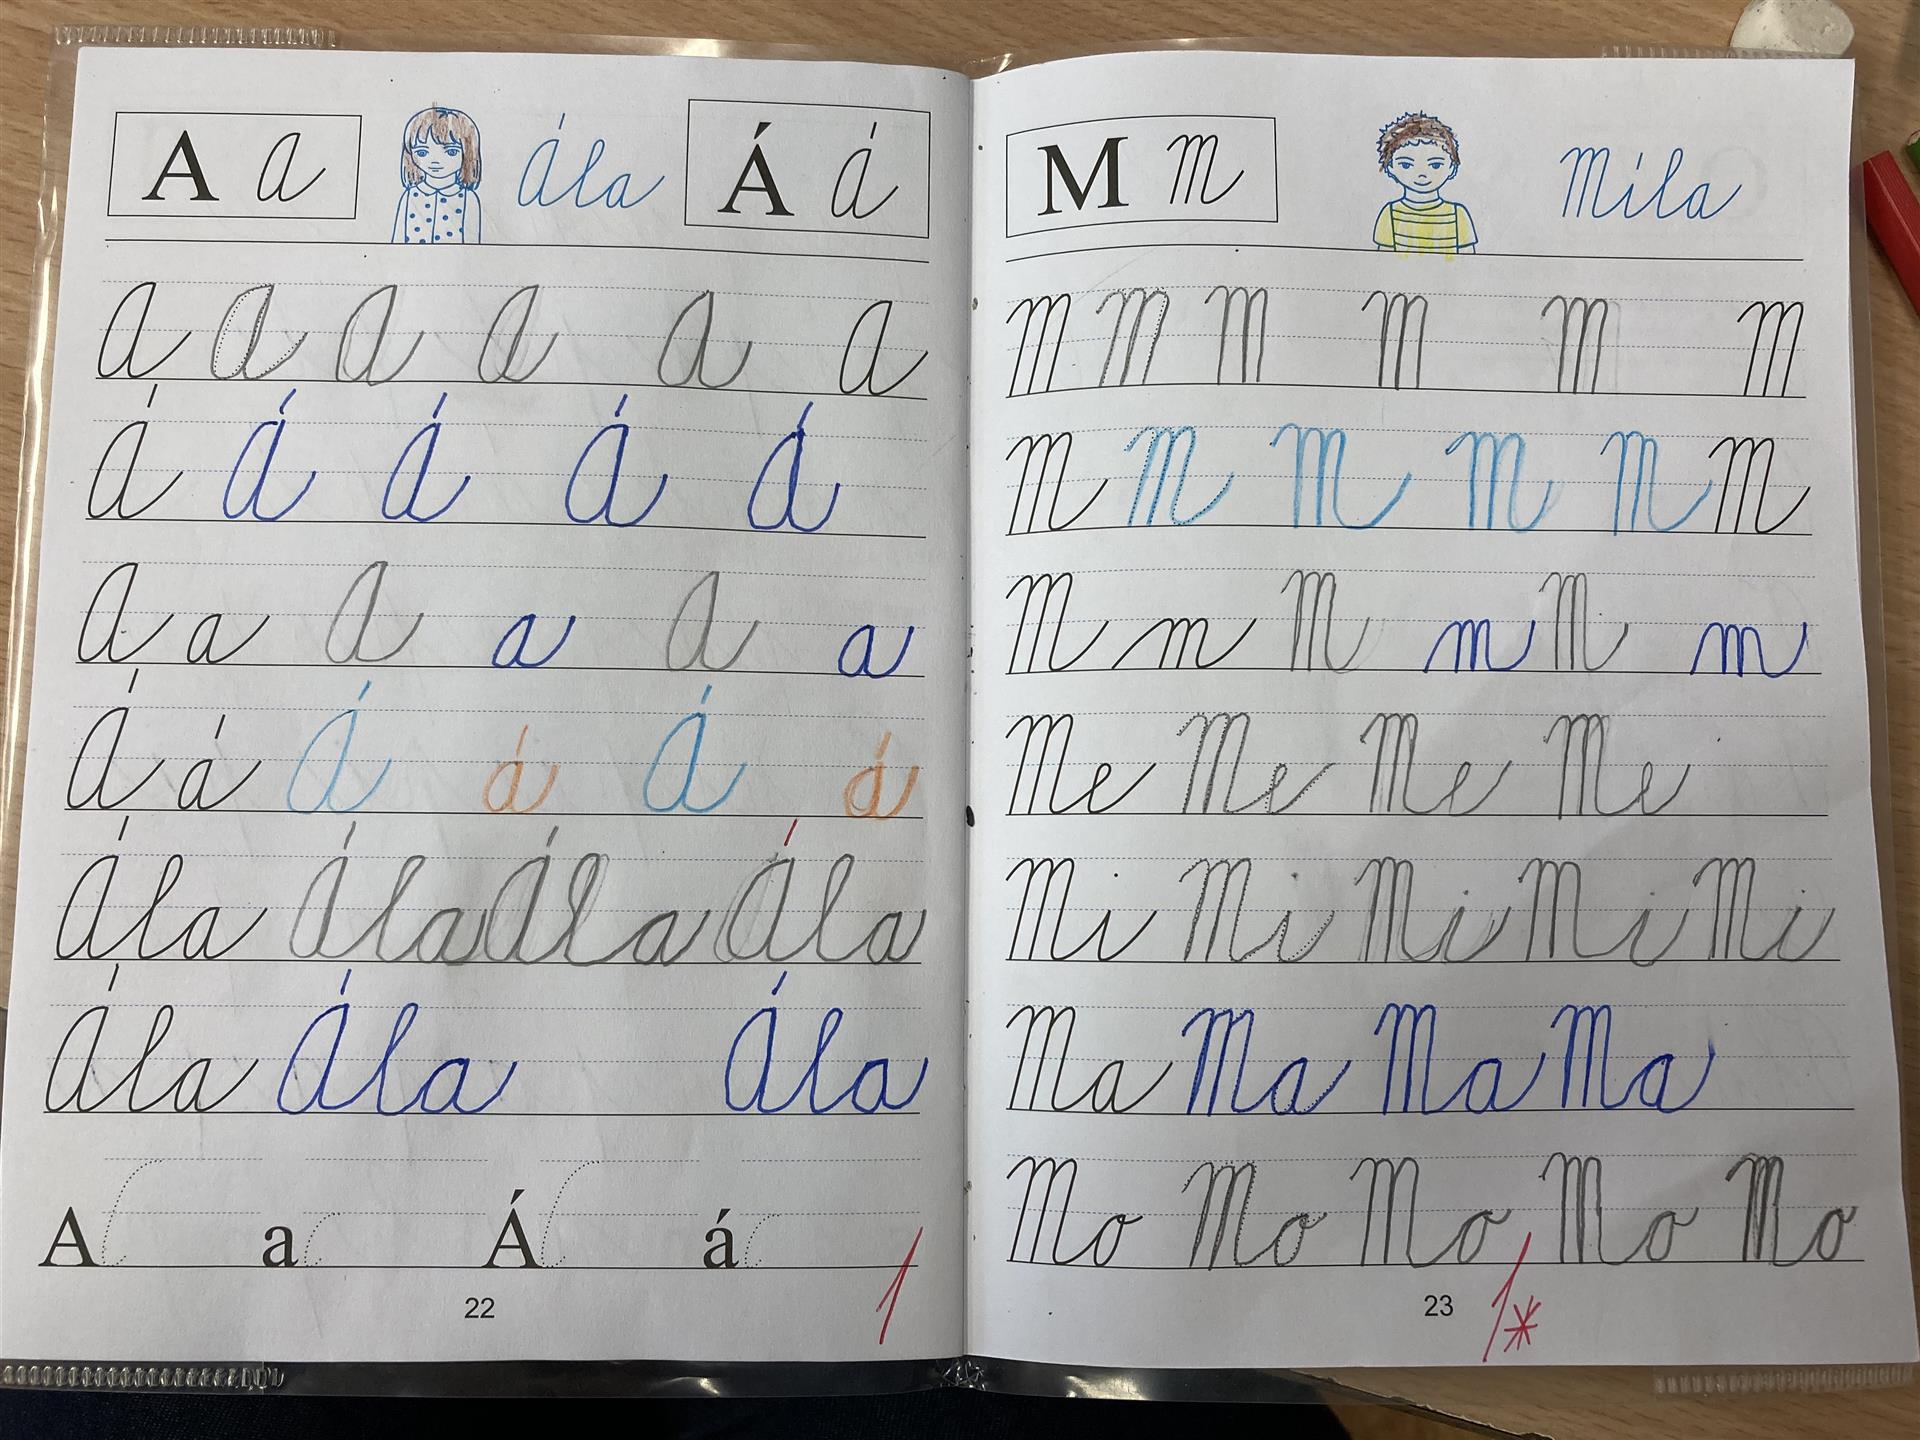 A a Ála Á á
A A A A A A
Á Á Á Á Á
A a A a A a
Á á Á á Á á
Ála Ála Ála Ála
Ála Ála Ála
A a Á á
22 1
M m Míla
M M M M M M
M M M M M M
M m M m M m
Me Me Me Me
Mi Mi Mi Mi Mi
Ma Ma Ma Ma
Mo Mo Mo Mo Mo
23 1*